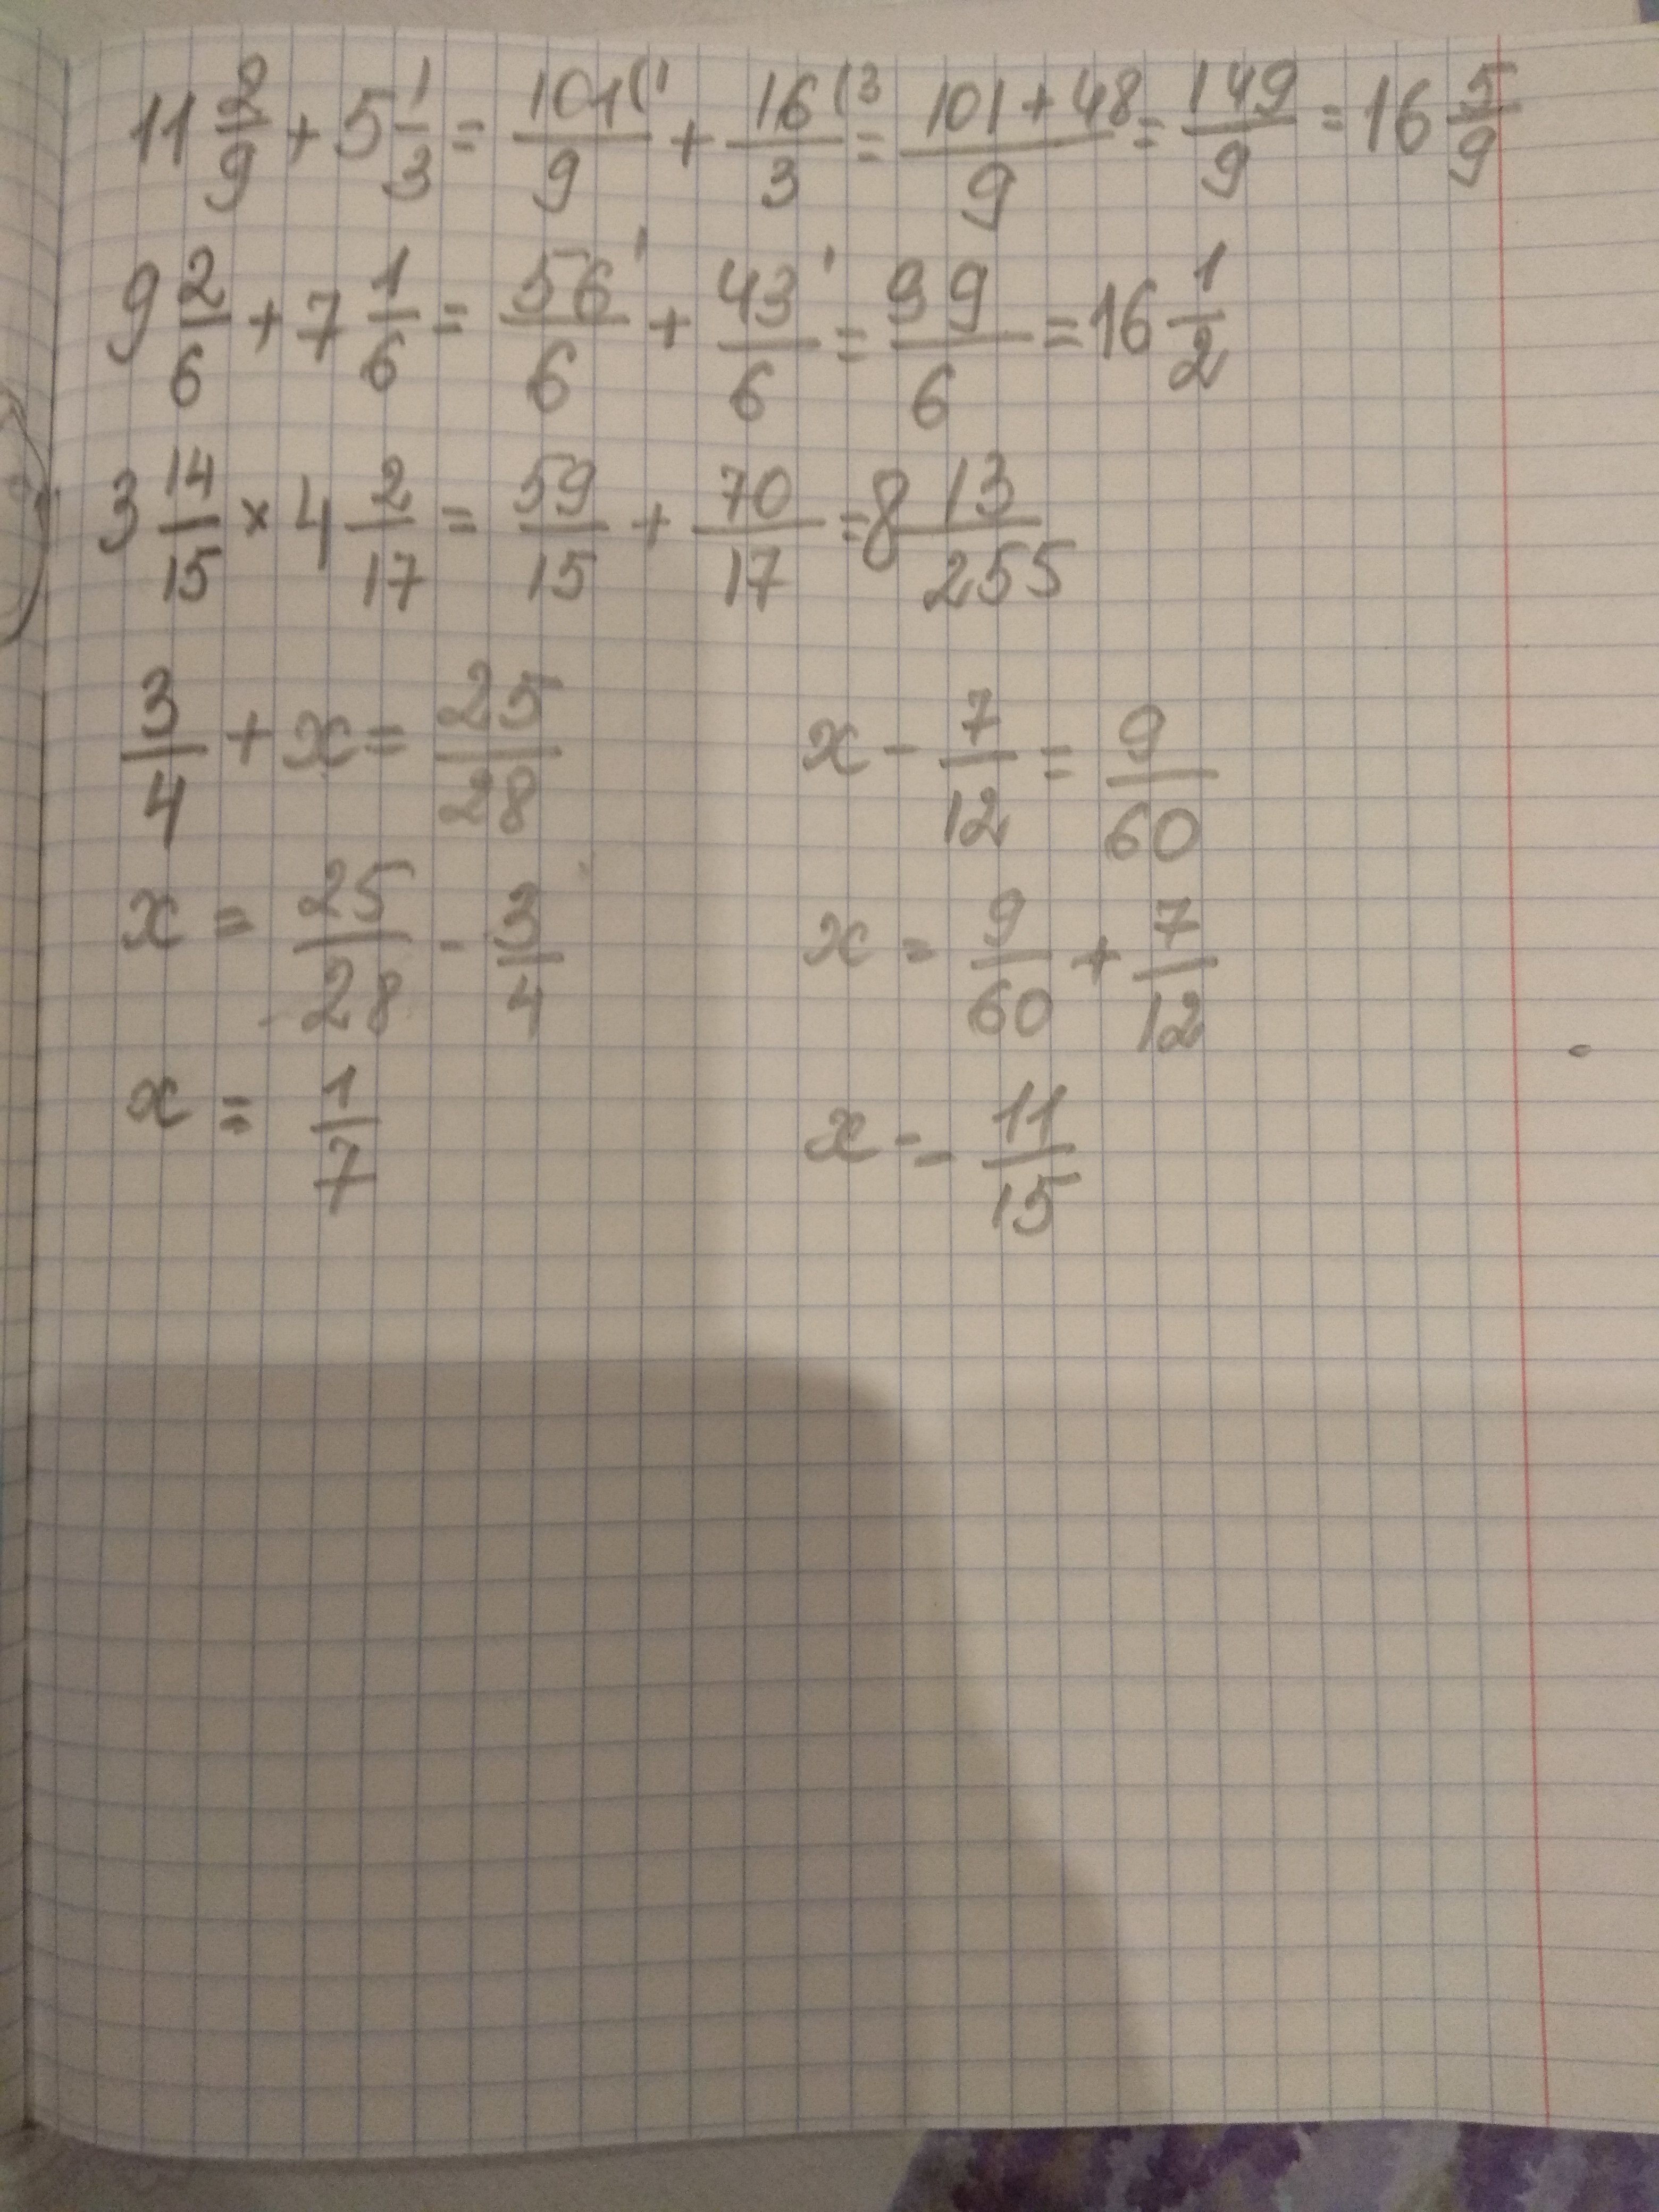 11 2/9 + 5 1/3 = 101(1/9 + 16(3/3 = 101+48/9 = 149/9 = 16 5/9
9 2/6 + 7 1/6 = 56'/6 + 43'/6 = 99/6 = 16 1/2
3 14/15 × 4 2/17 = 59/15 + 70/17 = 8 13/255
3/4 + x = 25/28
x = 25/28 - 3/4
x = 1/7
x - 7/12 = 9/60
x = 9/60 + 7/12
x = 11/15